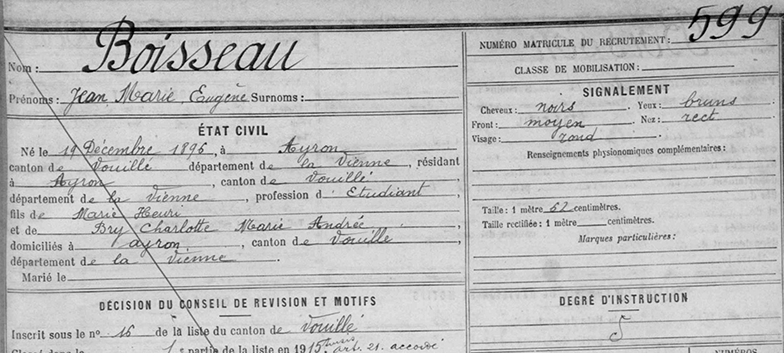 Nom: Boisseau
Prénoms: Jean Marie Eugène Surnoms:
ÉTAT CIVIL
Né le 19 Décembre 1895, à Ayron,
canton de Vouillé, département de la Vienne, résidant
à Ayron, canton de Vouillé,
département de la Vienne, profession d'Etudiant,
fils de Marie Henri
et de Bry Charlotte Marie Andrée,
domiciliés à ayron, canton de Vouillé,
département de la Vienne
Marié le
DÉCISION DU CONSEIL DE REVISION ET MOTIFS
Inscrit sous le no 16 de la liste du canton de Vouillé
1e partie de la liste en 1915 art. 21. accordé
NUMÉRO MATRICULE DU RECRUTEMENT: 599
CLASSE DE MOBILISATION:
SIGNALEMENT
Cheveux: noirs Yeux: bruns
Front: moyen Nez: rect
Visage: rond
Renseignements physionomiques complémentaires:
Taille: 1 mètre 62 centimètres.
Taille rectifiée: 1 mètre centimètres.
Marques particulières:
DEGRÉ D'INSTRUCTION
5
NUMÉROS